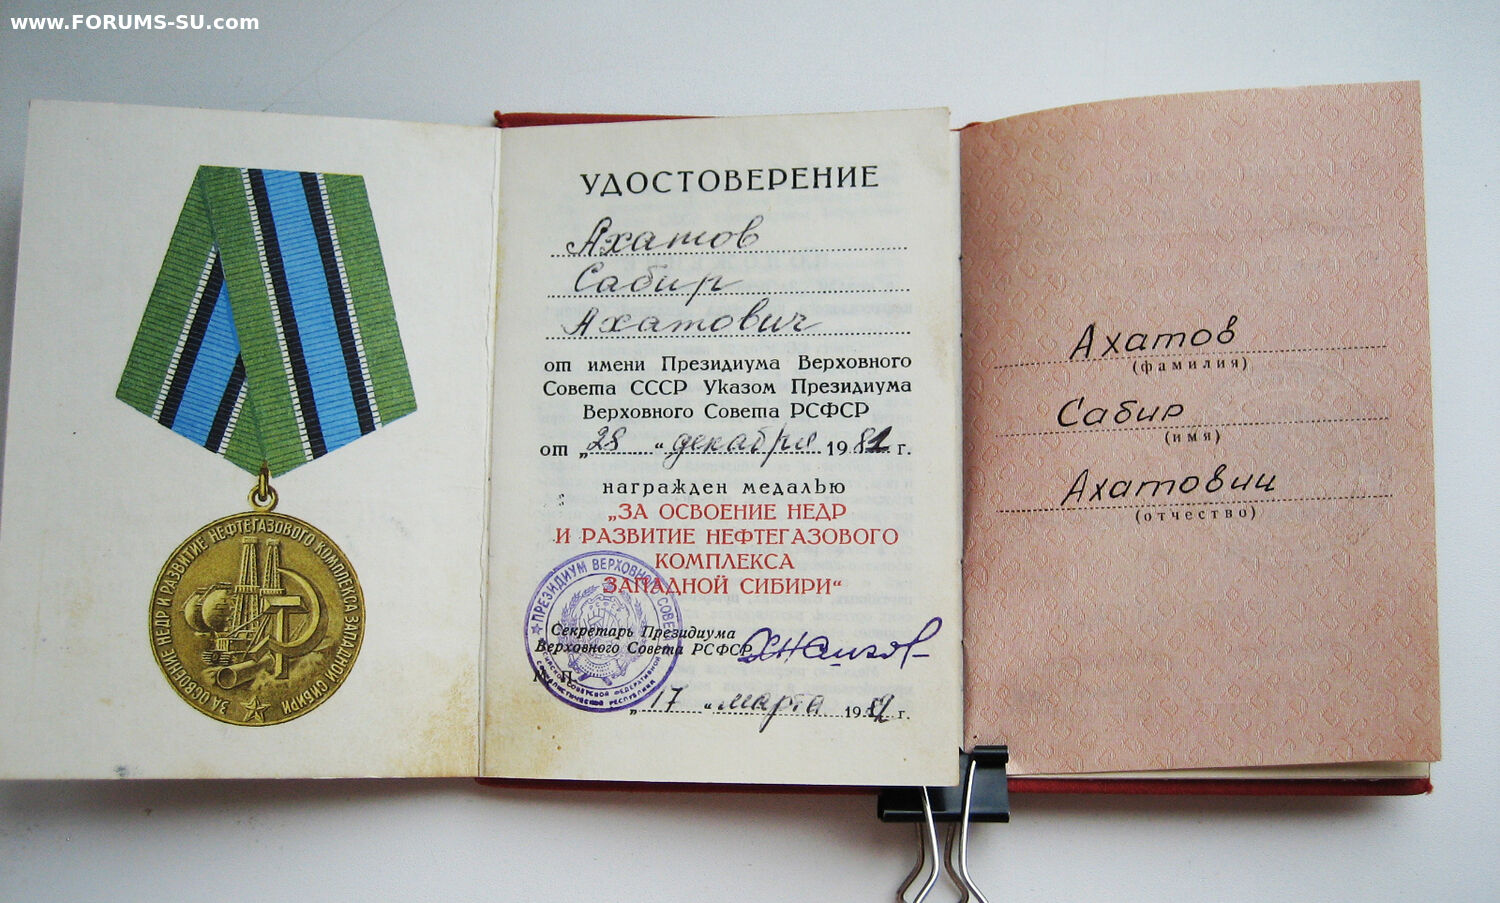 www.FORUMS-SU.com
ЗА ОСВОЕНИЕ НЕДР И РАЗВИТИЕ НЕФТЕГАЗОВОГО КОМПЛЕКСА ЗАПАДНОЙ СИБИРИ
УДОСТОВЕРЕНИЕ
Ахатов
Сабир
Ахатович
от имени Президиума Верховного
Совета СССР Указом Президиума
Верховного Совета РСФСР
от „28 “ декабря 1981 г.
награжден медалью
„ЗА ОСВОЕНИЕ НЕДР
И РАЗВИТИЕ НЕФТЕГАЗОВОГО
КОМПЛЕКСА
ЗАПАДНОЙ СИБИРИ“
ПРЕЗИДИУМ ВЕРХОВНОГО СОВЕТА
Секретарь Президиума
Верховного Совета РСФСР
„17 “ марта 19 г.
Ахатов
(фамилия)
Сабир
(имя)
Ахатович
(отчество)